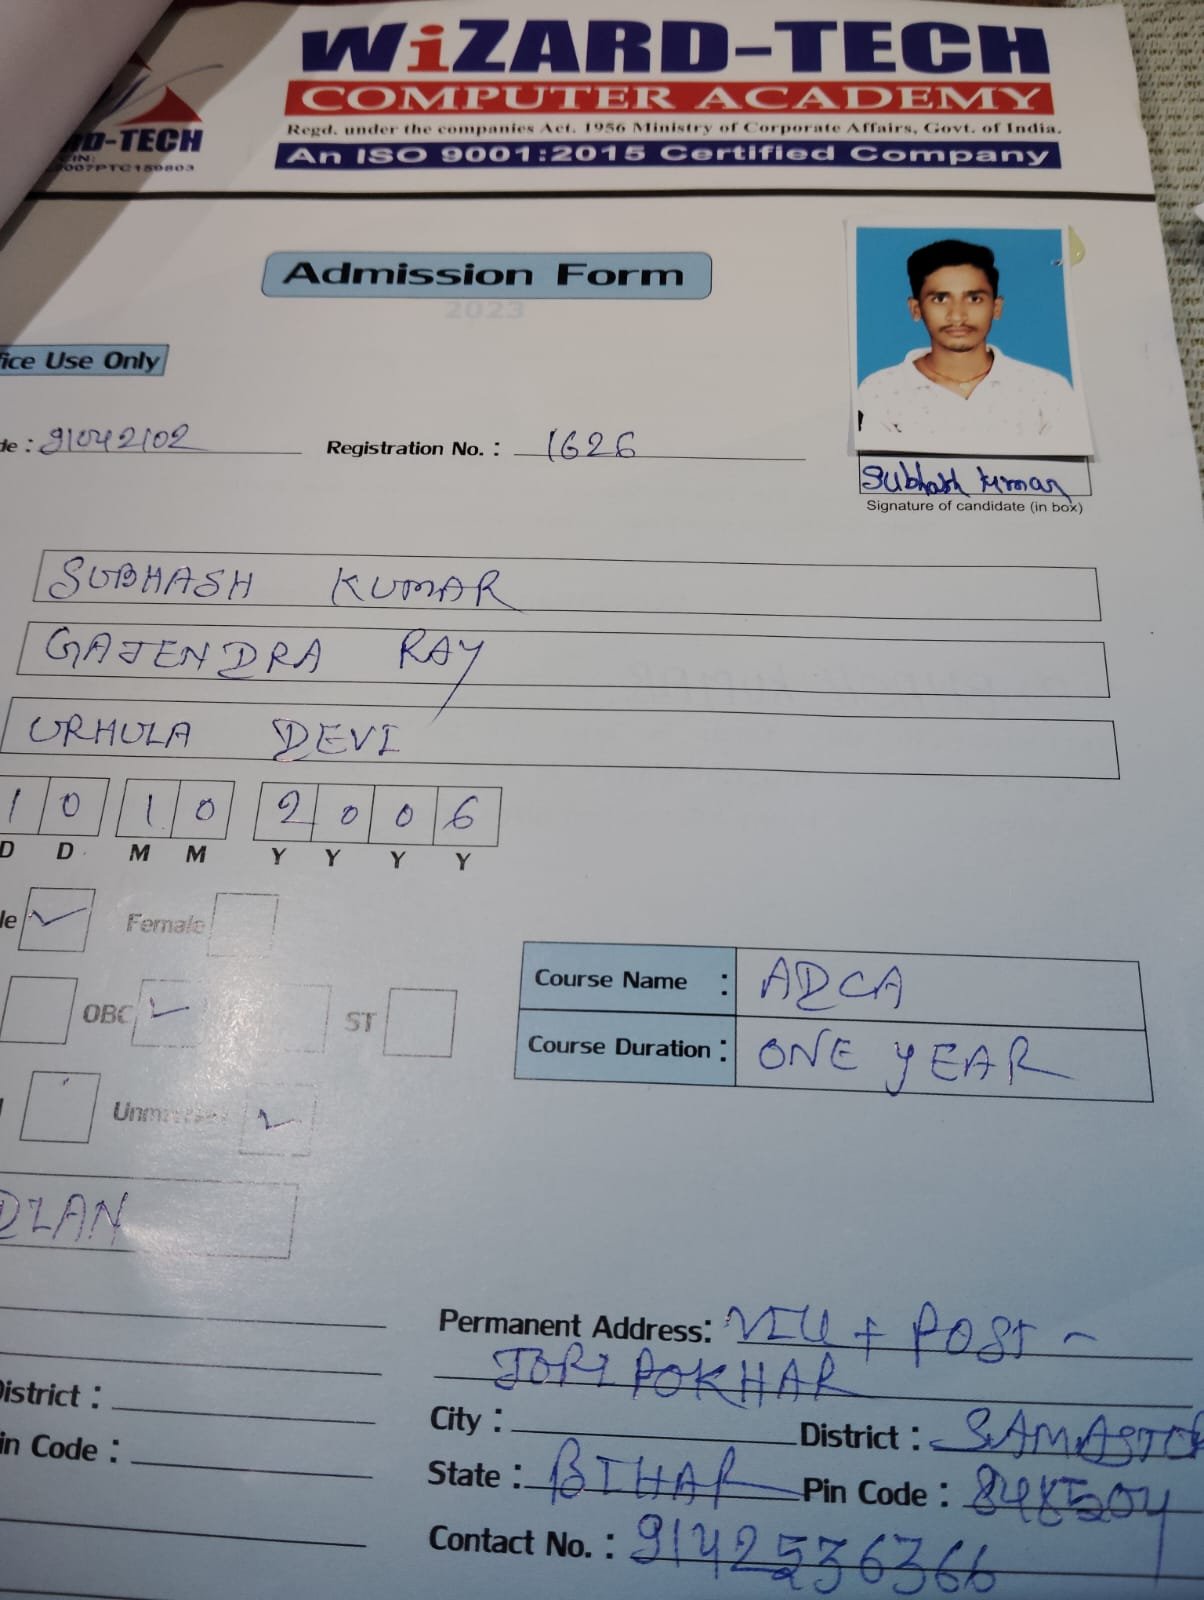 WiZARD-TECH
COMPUTER ACADEMY
Regd. under the companies Act. 1956 Ministry of Corporate Affairs, Govt. of India.
An ISO 9001:2015 Certified Company
RD-TECH
IN:
007PTC159803
Admission Form
2023
fice Use Only
de : 91042102 Registration No. : 1626
Subhash Kumar
Signature of candidate (in box)
SUBHASH KUMAR
GAJENDRA RAY
URHULA DEVI
1 0 1 0 2 0 0 6
D D M M Y Y Y Y
le Female
OBC ST
Course Name : ADCA
Course Duration : ONE YEAR
DIAN
Permanent Address: VILL + POST -
JORI POKHAR
District :
City : District : SAMASTI
in Code :
State : BIHAR Pin Code : 848504
Contact No. : 9142536366